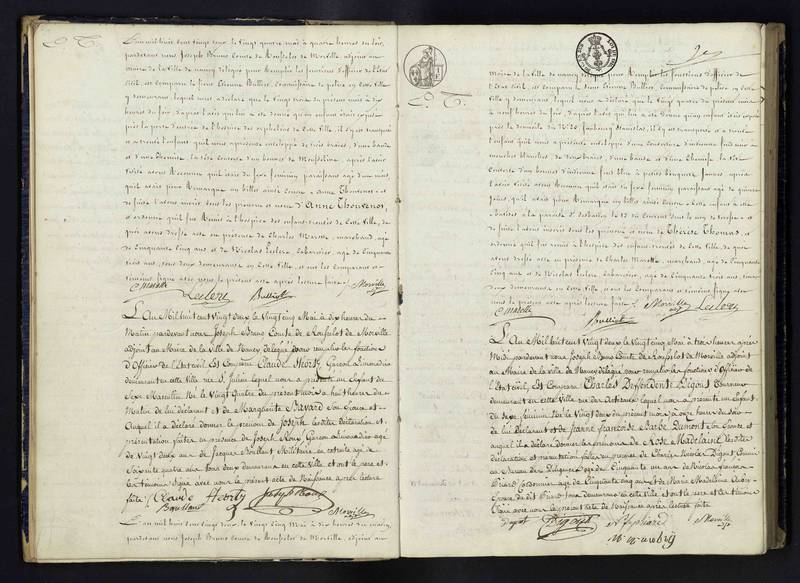 L'an mil huit cent vingt deux le vingt quatre mai à quatre heures du soir,
pardevant nous Joseph Bruno Comte de Rousselot de Morville adjoint au
maire de la ville de nancy délégué pour Remplir les fonctions d'officier de l'Etat
Civil, est Comparu le sieur Etienne Bulliot, Commissaire de police en cette
ville y demeurant, lequel nous a déclaré que le vingt trois du présent mois à dix
heures du soir, d'après l'avis qui lui a été donné qu'un enfant était exposé
près la porte d'entrée de l'hospice des orphelins de cette ville, il s'y est transporté
et a trouvé l'enfant qu'il nous a présenté enveloppé de trois draps, d'une bande
et d'une Chemise, la tête couverte d'un bonnet de Mousseline, après l'avoir
visité avons Reconnu qu'il était du sexe féminin paraissant agé d'un jour
qu'il avait pour Remarque un billet ainsi conçu « Anne Thouvenot » et
de suite l'avons inscrit sous les prénoms et nom d'Anne Thouvenot,
et ordonné qu'il fut Remis à l'hospice des enfans trouvés de cette ville, de
quoi avons dressé acte en présence de Charles Marotte, marchand, agé
de Cinquante Cinq ans et de Nicolas Leclerc Cabaretier, agé de Cinquante
trois ans, tous deux demeurant en cette ville, et ont les Comparant et
témoins, signé avec nous le présent acte après lecture faite.
C Marotte Leclerc Bulliot Morville
L'An Mil huit cent vingt deux le vingt cinq Mai à dix heures du
Matin pardevant nous Joseph Bruno Comte de Rousselot de Morville
adjoint au Maire de la Ville de Nancy délégué pour remplir les fonctions
d'Officier de l'Etat civil, Est Comparu Claude Hesrty Garçon Limonadier
demeurant en cette ville rue St Julien lequel nous a présenté un Enfant du
Sexe Masculin Né le vingt quatre du présent mois à huit heures du
Matin de lui déclarant et de Marguerite Bavard son Epouse et
Auquel il a déclaré donner le prénom de Joseph lesdites déclaration et
présentation faites en présence de Joseph Roux Garçon Limonadier agé
de vingt deux ans de Jacques Boullant Militaire en retraite agé de
Soixante quatre ans tous deux demeurant en cette ville et ont le père et
les témoins signé avec nous le présent acte de Naissance après lecture
faite Claude Hesrty Joseph Roux
Boullant Morville
L'an mil huit cent vingt deux le vingt Cinq Mai à dix heures du matin,
pardevant nous Joseph Bruno Comte de Rousselot de Morville, adjoint au
maire de la ville de nancy délégué pour Remplir les fonctions d'officier de
l'Etat Civil, est Comparu le sieur Etienne Bulliot, Commissaire de police en cette
ville y demeurant, lequel nous a déclaré que le vingt quatre du présent mois
à neuf heures du soir, d'après l'avis qui lui a été donné qu'un enfant était exposé
près le domicile du No 20, faubourg Stanislas, il s'y est transporté et a trouvé
l'enfant qu'il nous a présenté enveloppé d'une couverture d'indienne
mouches blanches, de deux draps, d'une bande et d'une Chemise la tête
Couverte d'un bonnet d'indienne fond bleu à petits bouquets jaunes après
l'avoir visité avons Reconnu qu'il était du sexe féminin paraissant agé de quinze
jours, qu'il avait pour Remarque un billet ainsi conçu « Cette enfant a été
de suite l'avons inscrit sous les prénoms et nom de Thérèse Thomas, et
ordonné qu'il fut remis à l'hospice des enfans trouvés de cette ville, de quoi
avons dressé acte en présence de Charles Marotte, marchand, agé de Cinquante
Cinq ans et de Nicolas Leclerc Cabaretier, agé de Cinquante trois ans, tous
deux demeurant en cette ville et ont les Comparant et témoins signé avec
nous le présent acte après lecture faite.
C Marotte Bulliot Morville Leclerc
L'An Mil huit cent vingt deux le vingt cinq Mai à trois heures après
Midi pardevant nous Joseph Bruno Comte de Rousselot de Morville adjoint
au Maire de la ville de Nancy délégué pour remplir les fonctions d'Officier de
l'Etat civil, Est Comparu Charles Deffendenti Digout
demeurant en cette ville lequel nous a présenté un Enfant
du sexe féminin Né le vingt deux du présent mois à onze heures du soir
de lui déclarant et de Jeanne françoise Barbe Dumont son Epouse et
auquel il a déclaré donner les prénoms de Rose Madelaine lesdites
déclaration et présentation faites en présence de Charles Nicolas Digout Commis
au Bureau des Diligences agé de Cinquante un ans de Nicolas françois
Piard Cordonnier agé de Cinquante cinq ans et Marie Madelaine
Epouse du dit Piard tous demeurant en cette ville et ont le père et les témoins
signé avec nous le présent acte de Naissance après lecture faite
Digout Digout Morville